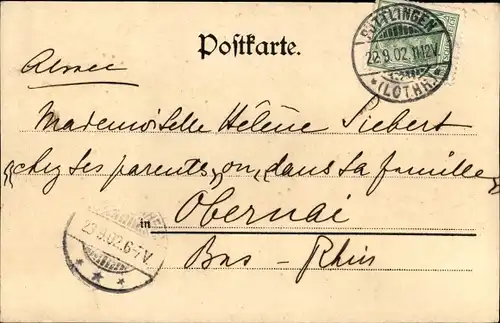 Postkarte.
BÜTTLINGEN
22.9.02.11-12V.
*(LOTHR.)*
Alsace
Mademoiselle Hélène Siebert
"chez ses parents", ou "dans sa famille"
in Obernai
23.9.02.6-7V.
Bas-Rhin